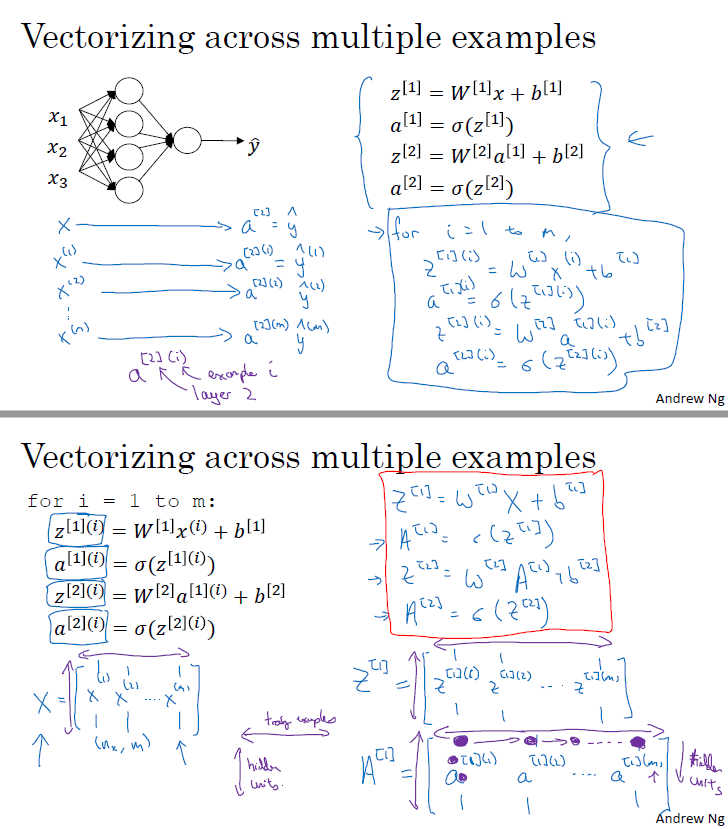 Vectorizing across multiple examples
x₁
x₂
x₃
ŷ
z^[1] = W^[1]x + b^[1]
a^[1] = σ(z^[1])
z^[2] = W^[2]a^[1] + b^[2]
a^[2] = σ(z^[2])
x → a^[2] = ŷ
x^(1) → a^[2](1) = ŷ^(1)
x^(2) → a^[2](2) ŷ^(2)
x^(m) → a^[2](m) ŷ^(m)
a^[2](i) example i
layer 2
→ for i = 1 to m,
z^[1](i) = W^[1] x^(i) + b^[1]
a^[1](i) = σ(z^[1](i))
z^[2](i) = W^[2] a^[1](i) + b^[2]
a^[2](i) = σ(z^[2](i))
Andrew Ng
Vectorizing across multiple examples
for i = 1 to m:
z^[1](i) = W^[1]x^(i) + b^[1]
a^[1](i) = σ(z^[1](i))
z^[2](i) = W^[2]a^[1](i) + b^[2]
a^[2](i) = σ(z^[2](i))
Z^[1] = W^[1] X + b^[1]
→ A^[1] = σ(Z^[1])
→ Z^[2] = W^[2] A^[1] + b^[2]
→ A^[2] = σ(Z^[2])
X = [x^(1) x^(2) ... x^(m)]
(n_x, m)
hidden
units.
Z^[1] = [z^[1](1) z^[1](2) ... z^[1](m)]
A^[1] = [a^[1](1) a^[1](2) ... a^[1](m)]
hidden
units
Andrew Ng